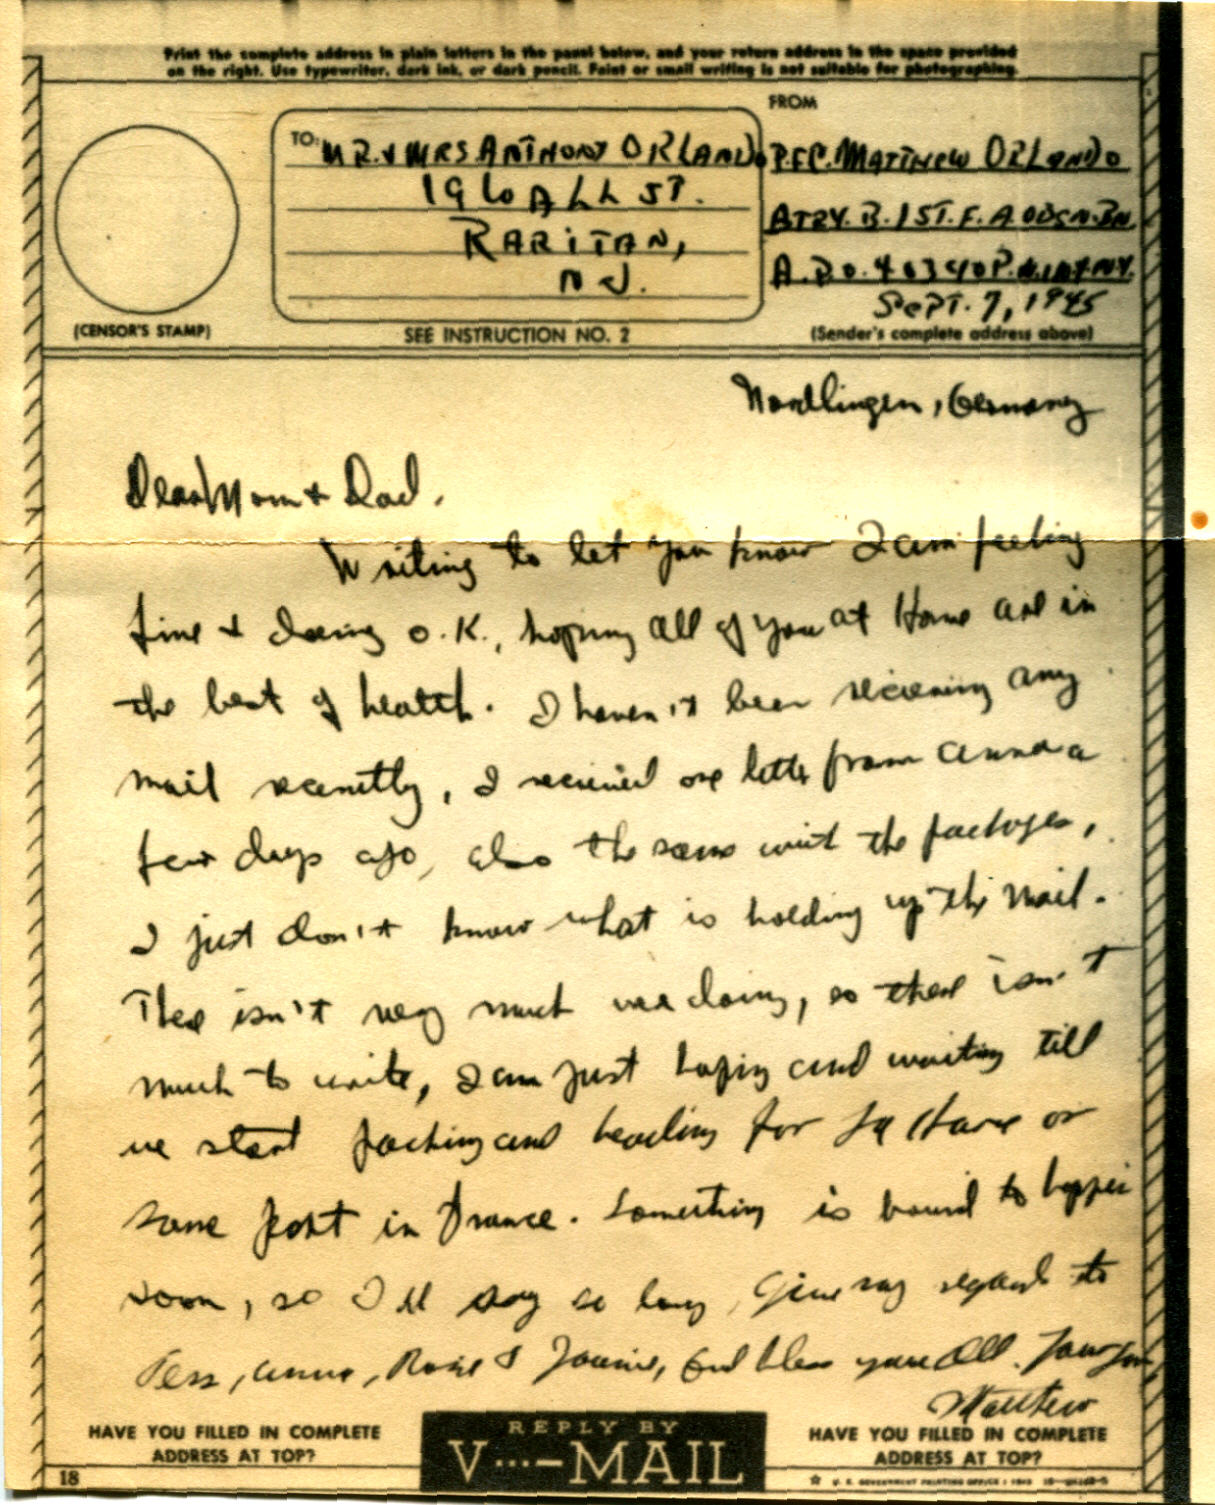 Print the complete address in plain letters in the panel below, and your return address in the space provided
on the right. Use typewriter, dark ink, or dark pencil. Faint or small writing is not suitable for photographing.
FROM
TO: MR. & MRS ANTHONY ORLANDO
ST.
RARITAN,
NJ.
P.F.C. MATTHEW ORLANDO
BTRY. B. 1ST. F. A OBSN. BN.
A.P.O. 403
SEPT. 7, 1945
(CENSOR'S STAMP)
SEE INSTRUCTION NO. 2
(Sender's complete address above)
Nordlingen, Germany
Dear Mom & Dad.
Writing to let you know I am feeling
fine & doing O.K., hoping all of you at Home are in
the best of health. I haven't been receiving any
mail recently, I received one letter from Anna a
few days ago, also the same with the packages,
I just don't know what is holding up the mail.
There isn't very much doing, so there isn't
much to write, I am just hoping and waiting till
we start packing and heading for La Havre or
some port in France. Something is bound to happen
soon, so I'll say so long, Give my regards to
Tess, Anna, Rosie & God bless you All. Your Son,
Matthew
HAVE YOU FILLED IN COMPLETE
ADDRESS AT TOP?
REPLY BY
V···—MAIL
HAVE YOU FILLED IN COMPLETE
ADDRESS AT TOP?
18
☆ U. S. GOVERNMENT PRINTING OFFICE : 1943